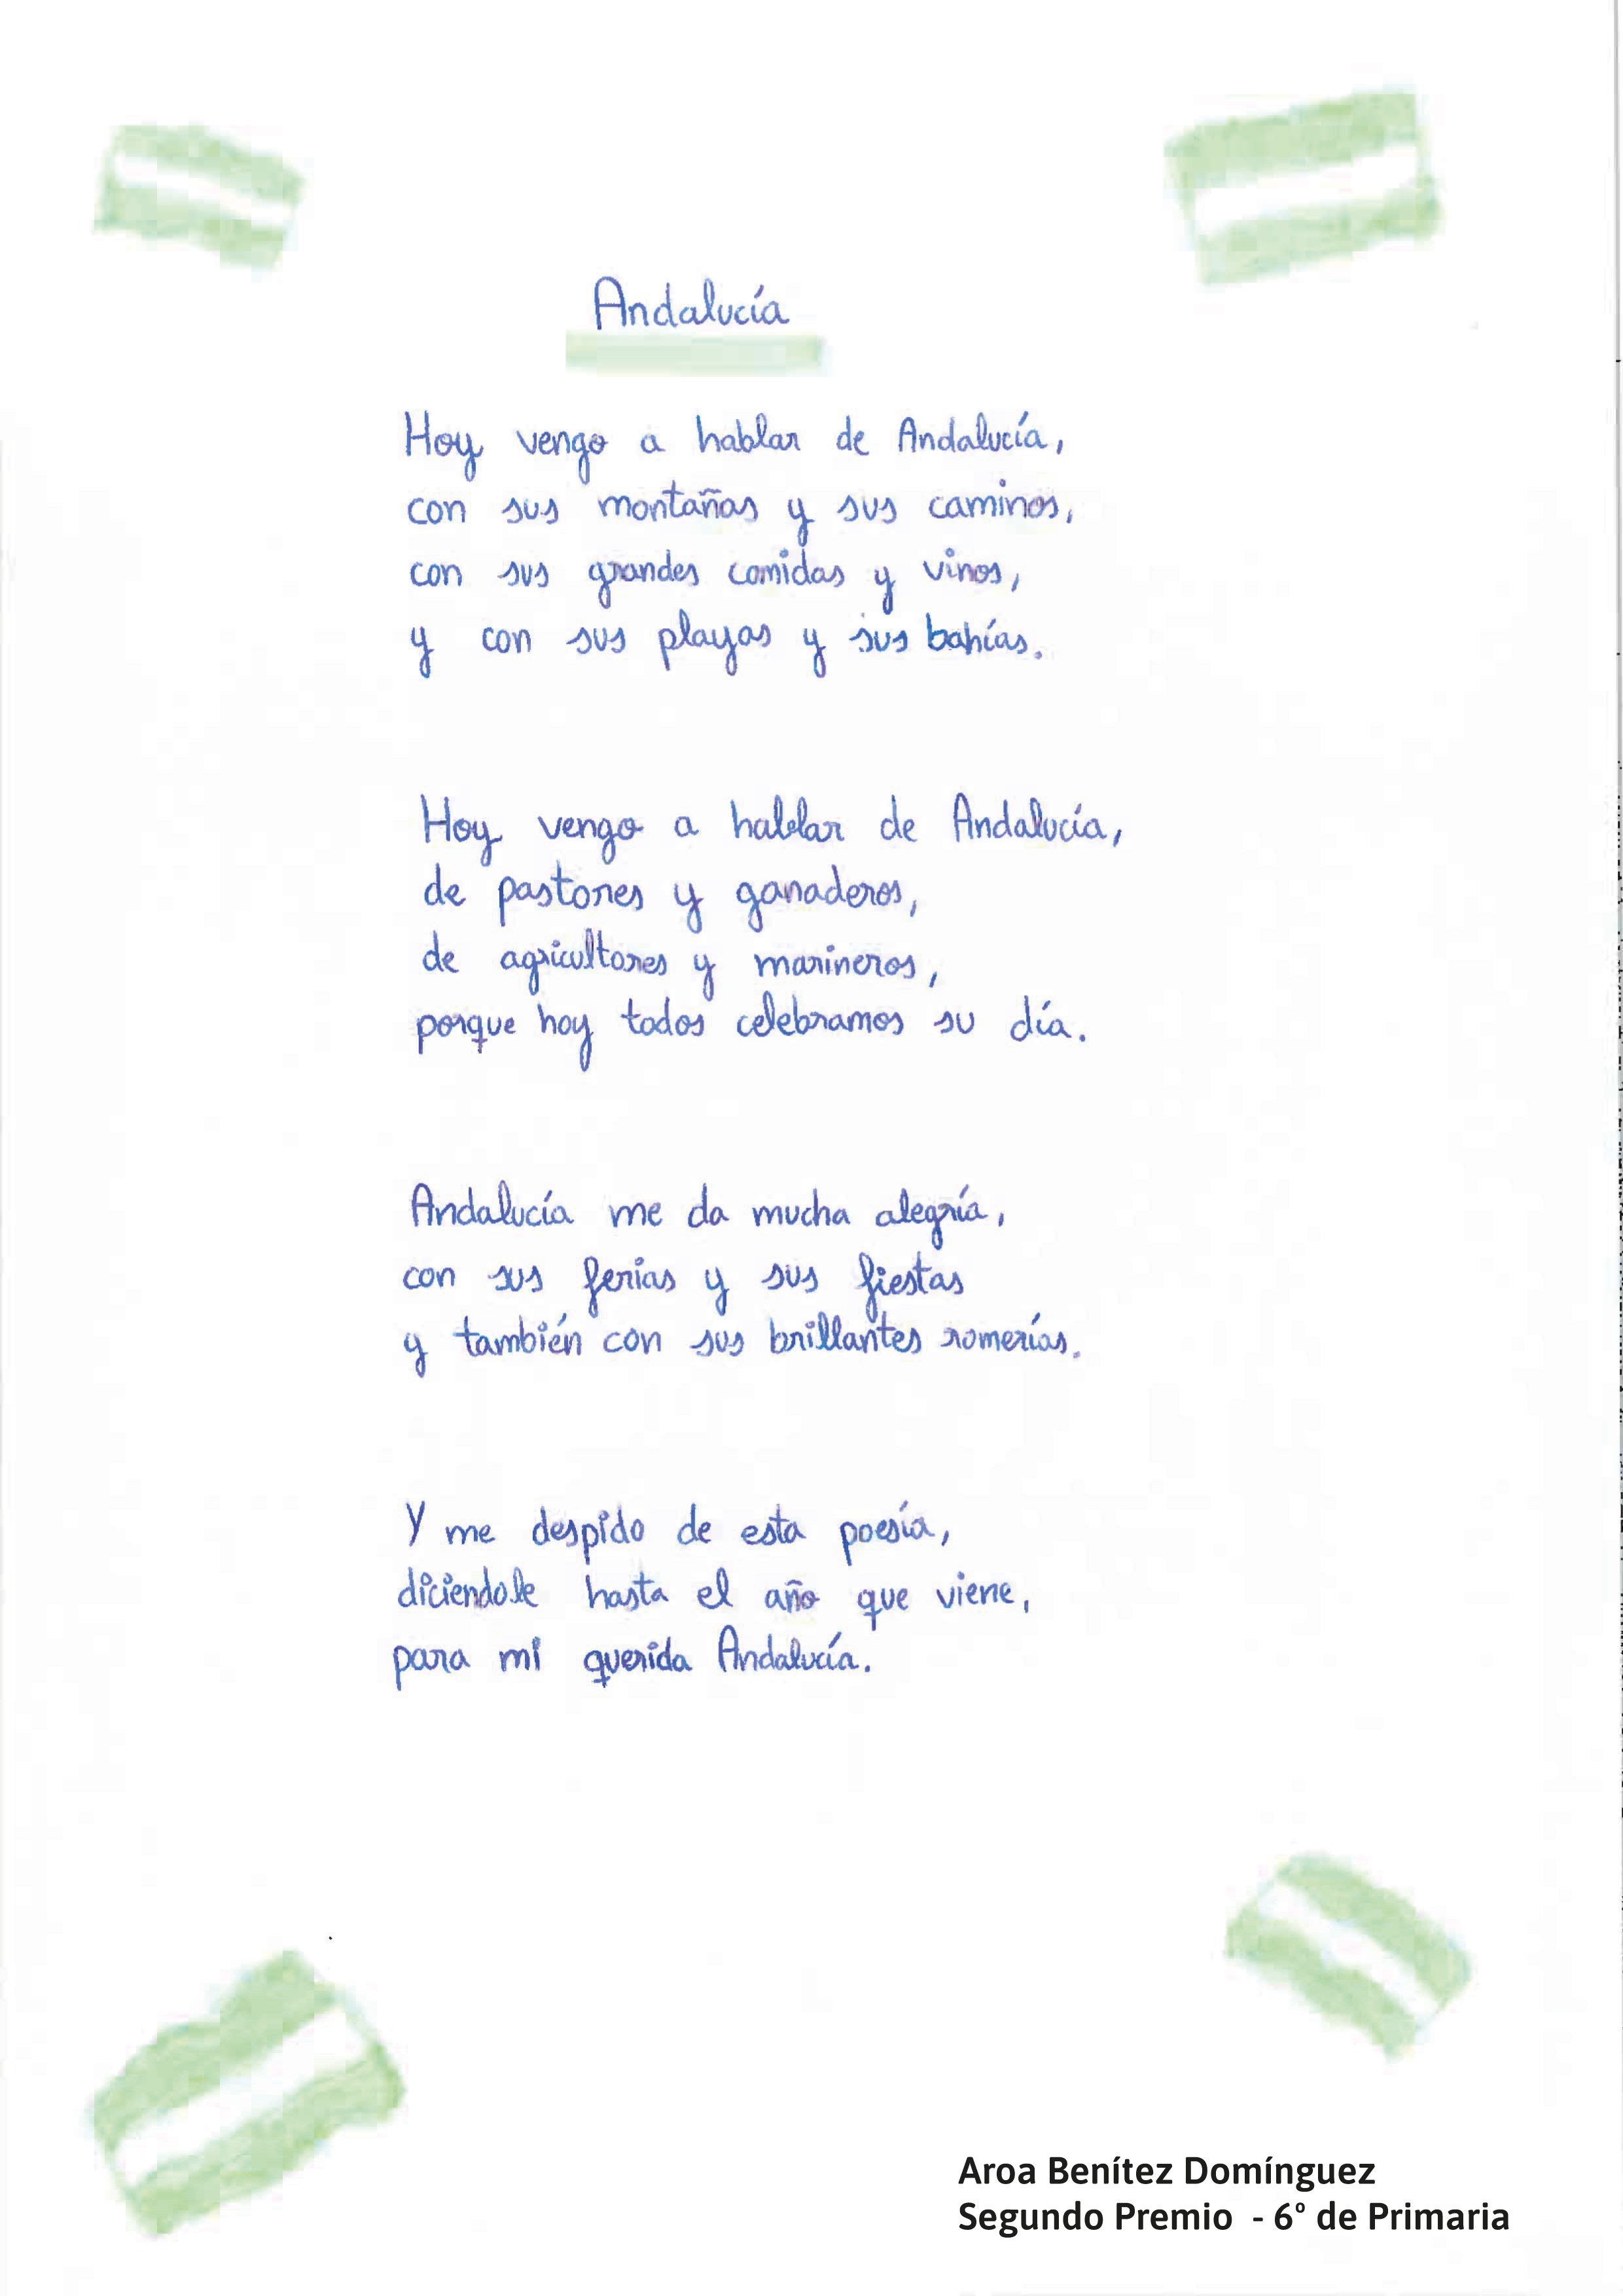 Andalucía
Hoy vengo a hablar de Andalucía,
con sus montañas y sus caminos,
con sus grandes comidas y vinos,
y con sus playas y sus bahías.
Hoy vengo a hablar de Andalucía,
de pastores y ganaderos,
de agricultores y marineros,
porque hoy todos celebramos su día.
Andalucía me da mucha alegría,
con sus ferias y sus fiestas
y también con sus brillantes romerías.
Y me despido de esta poesía,
diciendole hasta el año que viene,
para mi querida Andalucía.
Aroa Benítez Domínguez
Segundo Premio - 6º de Primaria